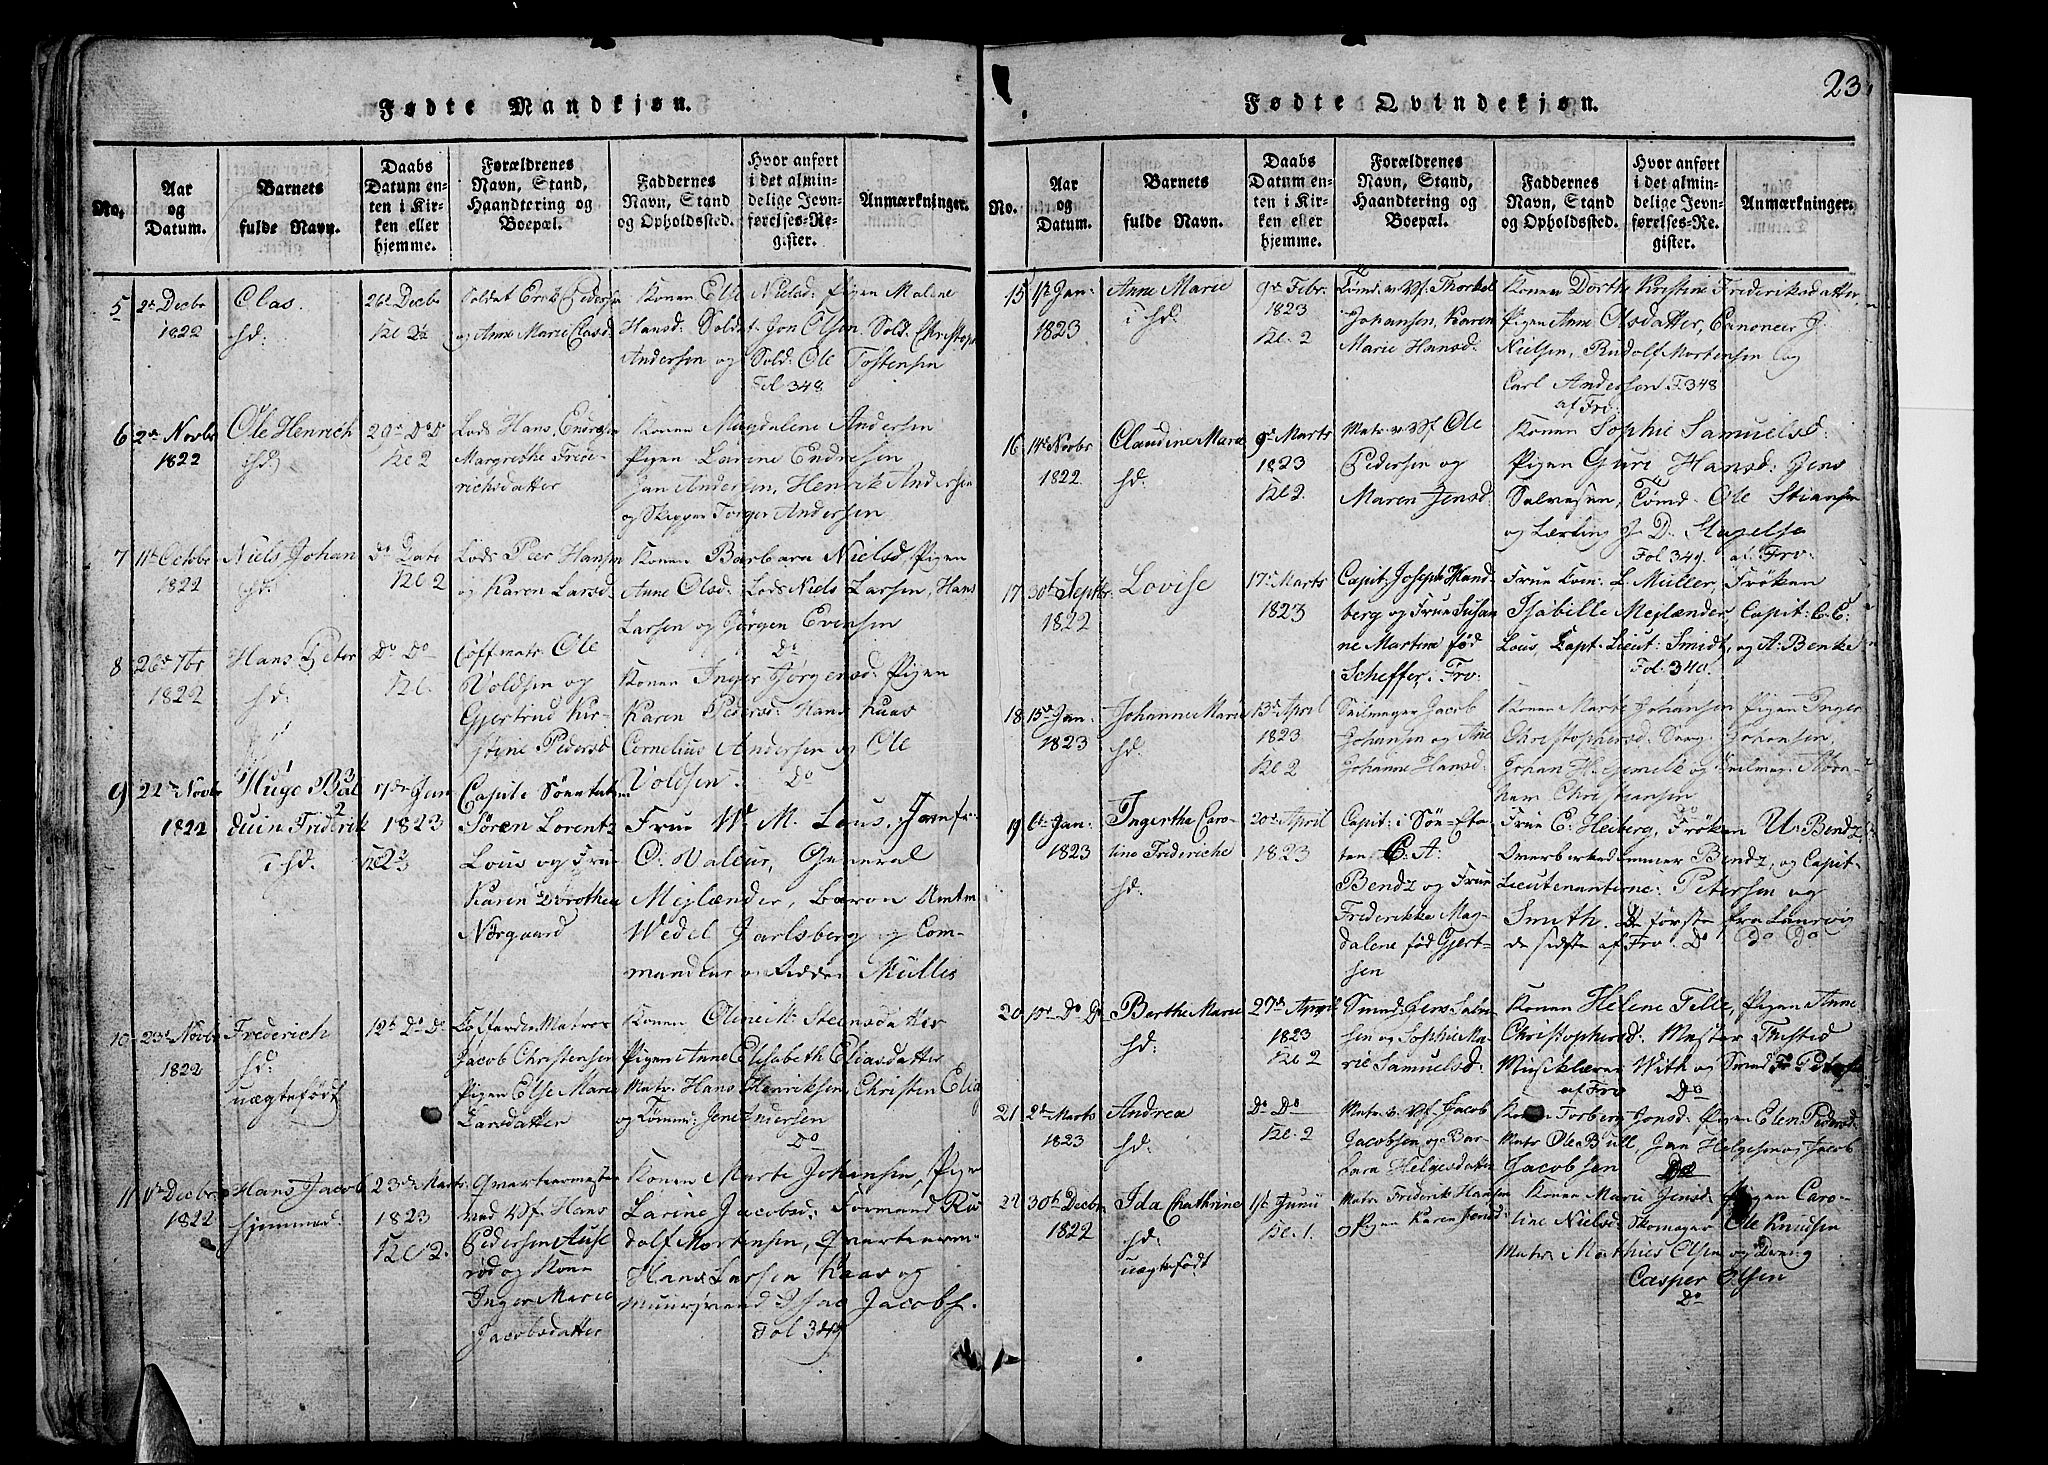 23
Fødte Mandkjøn.
No.
Aar og Datum.
Barnets fulde Navn.
Daabs Datum enten i Kirken eller hjemme.
Forældrenes Navn, Stand, Haandtering og Boepæl.
Faddernes Navn, Stand og Opholdssted.
Hvor anført i det almindelige Jevnførelses-Register.
Anmærkninger.
5
2de Decbr
1822
Clas
hd:
26de Decbr
Kl 2½
Soldat Erek Pedersen
og Anne Marie Clasd:
Konen Else Nielsd: Pigen Malene
Hansd: Soldat Jon Olsen Sold: Christoph
Andersen og Sold: Ole Tostensen
Fol 348
6
2de Novbr
1822
Ole Henrich
ihd:
29de Do Do
Kl 2
Lods Hans Endresen
Margrethe Frede-
richsdatter
Konen Magdalene Andersen
Pigen Larine Endresen
Jan Andersen, Henrik Andersen
og Skipper Torger Andersen
7
11te Octobr
1822
Niels Johan
hd:
Do Dato
Kl 2
Lods Peer Hansen
og Karen Larsd:
Konen Barbara Nielsd, Pigen
Anne Olsd: Lods Niels Larsen, Hans
Larsen og Jørgen Evensen
Do
8
26de 7br
1822
Hans Peter
hd:
Do Do
Kl.
Coffmatr: Ole
Voldsen og
Gjertrud Kir-
stine Pedersd
Konen Inger Jørgensd: Pigen
Karen Pedersd: Hans Kaas
Cornelius Andersen og Ole
Voldsen. Do
9
22de Novbr
1822
Hugo Bal
duin Friderik
i hd.
1823
Kl 2
Capit: i Søeetaten
Søren Lorentz
Lous og Frue
Karen Dorothea
Nørgaard
Frue W. M. Lous, Jomfr:
O. Valeur, General
Mejlænder, Baron Amtm:
Wedel Jarlsberg og Com-
mandeur og Ridder Müller
10
23de Novbr
1822
Frederich
hd:
uægtefødt
12te Do Do
Coffardie Matros
Jacob Christensen
Pigen Else Marie
Larsdatter
Konen Oline M. Steensdatter
Pigen Anne Elisabeth Eliasdatter
Matr: Hans Henriksen, Christen Elia
og Tømm: Jens Andersen
Do
11
1822
Hans Jacob
hjemmed:
23de Marts
1823
Kl 2.
Qvarteermester
ved Vf. Hans
Pedersen Ause
rød og Kone
Inger Marie
Jacobsdatter
Konen Marte Johansen, Pigen
Larine Jacobsd: Formand Ru
dolf Mortensen, Qvarteerm:
Hans Larsen Kaas og
Muursvend Isac Jacobs.
Fol 349
Fødte Qvindekjøn.
No.
Aar og Datum.
Barnets fulde Navn.
Daabs Datum enten i Kirken eller hjemme.
Forældrenes Navn, Stand, Haandtering og Boepæl.
Faddernes Navn, Stand og Opholdssted.
Hvor anført i det almindelige Jevnførelses-Register.
Anmærkninger.
15
1ste Jan:
1823
Anne Marie
i hd:
9de Febr.
1823
Kl. 2
Tømd: v. Vf. Thorkel
Johansen, Karen
Marie Hansd:
Konen Dorthe Kirstine Frederiksdatter
Pigen Anne Olsdatter, Canoneer J.
Nielsen, Rudolf Mortensen og
Carl Andersen. F. 348
af Fro.
16
14de Novbr
1822
Claudine Marie
hd:
9de Marts
1823
Kl 2.
Matr: v. Vf Ole
Pedersen og
Maren Jensd:
Konen Sophie Samuelsd:
Pigen Guri Hansd: Jens
Salvesen, Tømd: Ole Stiansen
og Lærling J. D. Stapelfe
Fol 349. af Fro.
17
30te Septbr
1822
Lovise
17de Marts
1823
Capit: Joseph Hand-
berg og Frue Susan
ne Martine fød
Scheffer. Fro.
Frue Com: L. Müller, Frøken
Isabille Mejlænder, Capit: C. C.
Lous, Capt. Lieut: Smidt, og A. Benke
Fol. 349.
18
15de Jan:
1823
Johanne Marie
hd:
13de April
1823
Kl 2
Seilmager Jacob
Johansen og Ane
Johanne Hansd:
Konen Marte Johansen Pigen Inger
Christophersd: Serg: Johansen
Christiansen
Do
19
6te Jan:
1823
Ingertha Caro-
line Friderikke
hd:
20de April
1823
Capit: i Søe-Eta-
ten C. A:
Bendz og Frue
Frederikke Mag-
dalene fød Gjert-
sen
Frue E. Heiberg, Frøken U. Bendz,
Overberetskammer Bendz, og Capit-
Lieutenanterne: Petersen og
Smith. De første fra Laurvig
de sidste af Fro. Do Do Do
20
10de Do Do
Berthe Marie
hd:
27de April
1823
Kl 2
Smed Jens Salve-
sen og Sophie Ma-
rie Samuelsd:
Konen Helene Telle, Pigen Anne
Christophersd: Mester Thisted
Musiklærer With og Smed
af Fro Do
21
2de Marts
1823
Andrea
hd:
Do Do
Kl. 2
Matr: v. Vf. Jacob
Jacobsen og Bar-
bara Helgesdatter
Konen Torberg Jonsd: Pigen Elen Pedersd:
Matr: Ole Bull, Jan Helgesen og Jacob
Jacobsen Do
22
30te Decbr
1822
Ida Chathrine
hd:
uægtefødt
1ste Junii
Kl. 1.
Matr: Frederik Hansen
og Pigen Karen
Konen Marie Jensd: Pigen Caro-
line Nielsd: Skomager Ole Knudsen
Matr: Mathias Olsen og Dreng
Casper Olsen
Do